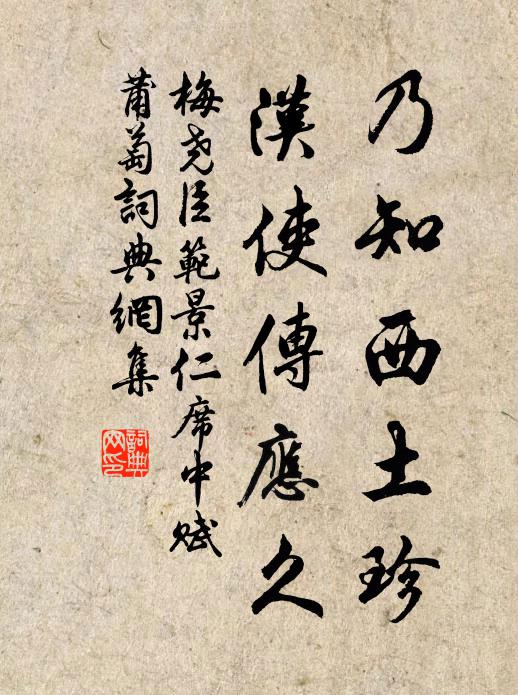 乃知西土珍
漢使傳應久
梅堯臣範景仁席中賦
葡萄詞典網集
詞典
网印